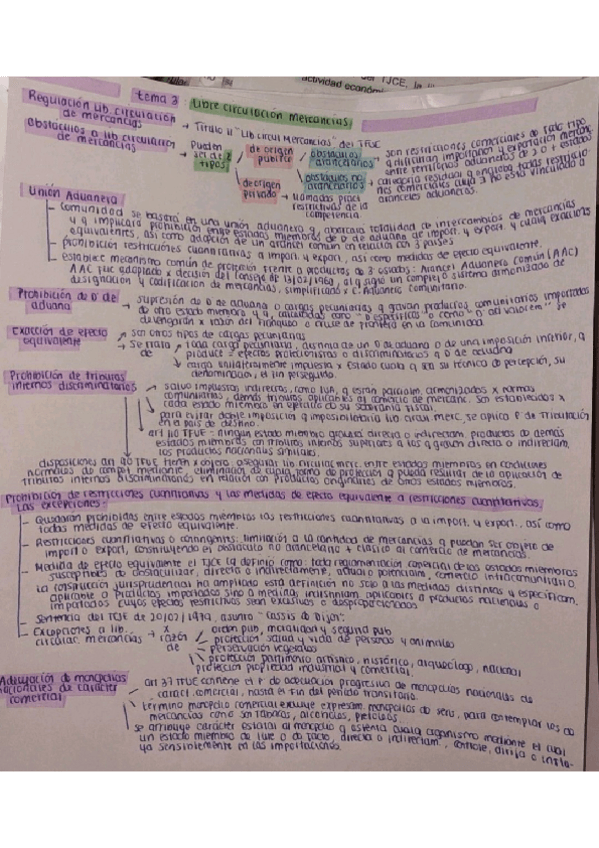 TJCE, la
actividad económi
tema 3: Libre circulación mercancías
Regulación lib circulación de mercancías → Título II "Lib circul Mercancías" del TFUE
Obstáculos a lib circulación de mercancías → Pueden ser de 2 tipos
de origen público
obstáculos arancelarios → son restricciones comerciales de todo tipo
q dificultan importación y exportación mercanc.
entre territorios aduaneros de 2 o + estados
obstáculos no arancelarios → categoría residual q engloba todas restriccio
nes comerciales cuya no está vinculado a
aranceles aduaneros.
de origen privado → llamadas prácti
restrictivas de la
competencia
Unión Aduanera
comunidad se basará en una unión aduanera q abarcará totalidad de intercambios de mercancías
y q implicará prohibición entre estados miembros de D de aduana de import. y export. y cualq exacciones
equivalentes, así como adopción de un arancel común en relación con 3 países
prohibición restricciones cuantitativas a import y export, así como medidas de efecto equivalente.
establece mecanismo común de protección frente a productos de 3º estados: Arancel Aduanero Común (AAC)
AAC fue adoptado x decisión del Consejo de 13/02/1960, al q sigue un complejo sistema armonizado de
designación y codificación de mercancías, simplificado x C. Aduanero Comunitario.
Prohibición de D de aduana → supresión de D de aduana o cargas pecuniarias q gravan productos comunitarios importados
de otro estado miembro y q, calculados como "D específicos" o como "D ad valorem" se
devengarían x razón del franqueo o cruce de frontera en la comunidad.
Exacción de efecto equivalente → son otros tipos de cargas pecuniarias
se trata de → una carga pecuniaria, distinta de un D de aduana o de una imposición interior, q
produce = efectos proteccionistas o discriminatorios q D de aduana
carga unilateralmente impuesta x estado cualq q sea su técnica de percepción, su
denominación, el fin perseguido.
Prohibición de tributos internos discriminatorios
salvo impuestos indirectos, como IVA, q están parcialm. armonizados x normas
comunitarias, demás tributos aplicables al comercio de mercanc. son establecidos x
cada estado miembro en ejercicio de su soberanía fiscal.
para evitar doble imposición q imposibilitaría lib circul. merc, se aplica P de tributación
en el país de destino.
art 110 TFUE: ningún estado miembro gravará directa o indirectam productos de demás
estados miembros con tributos internos superiores a los q graven directa o indirectam.
los productos nacionales similares.
disposiciones art 90 TFUE tienen x objeto asegurar lib circulac merc. entre estados miembros en condiciones
normales de compet mediante eliminación de cualq forma de protección q pueda resultar de la aplicación de
tributos internos discriminatorios en relación con productos originales de otros estados miembros.
Prohibición de restricciones cuantitativas y las medidas de efecto equivalente a restricciones cuantitativas.
Las excepciones:
Quedarán prohibidas entre estados miembros las restricciones cuantitativas a la import. y export., así como
todas medidas de efecto equivalente.
Restricciones cuantitativas o contingentes: limitación a la cantidad de mercancías q puedan ser objeto de
import o export, constituyendo el obstáculo no arancelario + clásico al comercio de mercancías.
Medida de efecto equivalente el TJCE la definió como: toda reglamentación comercial de los estados miembros
susceptibles de obstaculizar, directa o indirectamente, actual o potencialm, comercio intracomunitario
La construcción jurisprudencial ha ampliado esta definición no solo a las medidas distintas y específicam.
aplicable a productos importados sino a medidas indistintam aplicables a productos nacionales o
importados cuyos efectos restrictivos sean excesivos o desproporcionados
Sentencia del TJCE de 20/02/1979, asunto "Cassis de Dijon"
Excepciones a lib. circulac. mercancías → razón de
orden pub, moralidad y segurid pub
protección salud y vida de personas y animales
perservación vegetales
protección patrimonio artístico, histórico, arqueológo, nacional
protección propiedad industrial y comercial.
Adecuación de monopolios nacionales de carácter comercial
art 37 TFUE contiene el P de adecuación progresiva de monopolios nacionales de
caract. comercial, hasta el fin del período transitorio.
término monopolio comercial excluye expresam. monopolios de servis, para contemplar los de
mercancías como son tabacos, alcoholes, petróleos.
se atribuye carácter estatal al monopolio q ostenta cualq organismo mediante el cual
un estado miembro de iure o de facto, directa o indirectam., controle, dirija o influ-
ya sensiblemente en las importaciones.